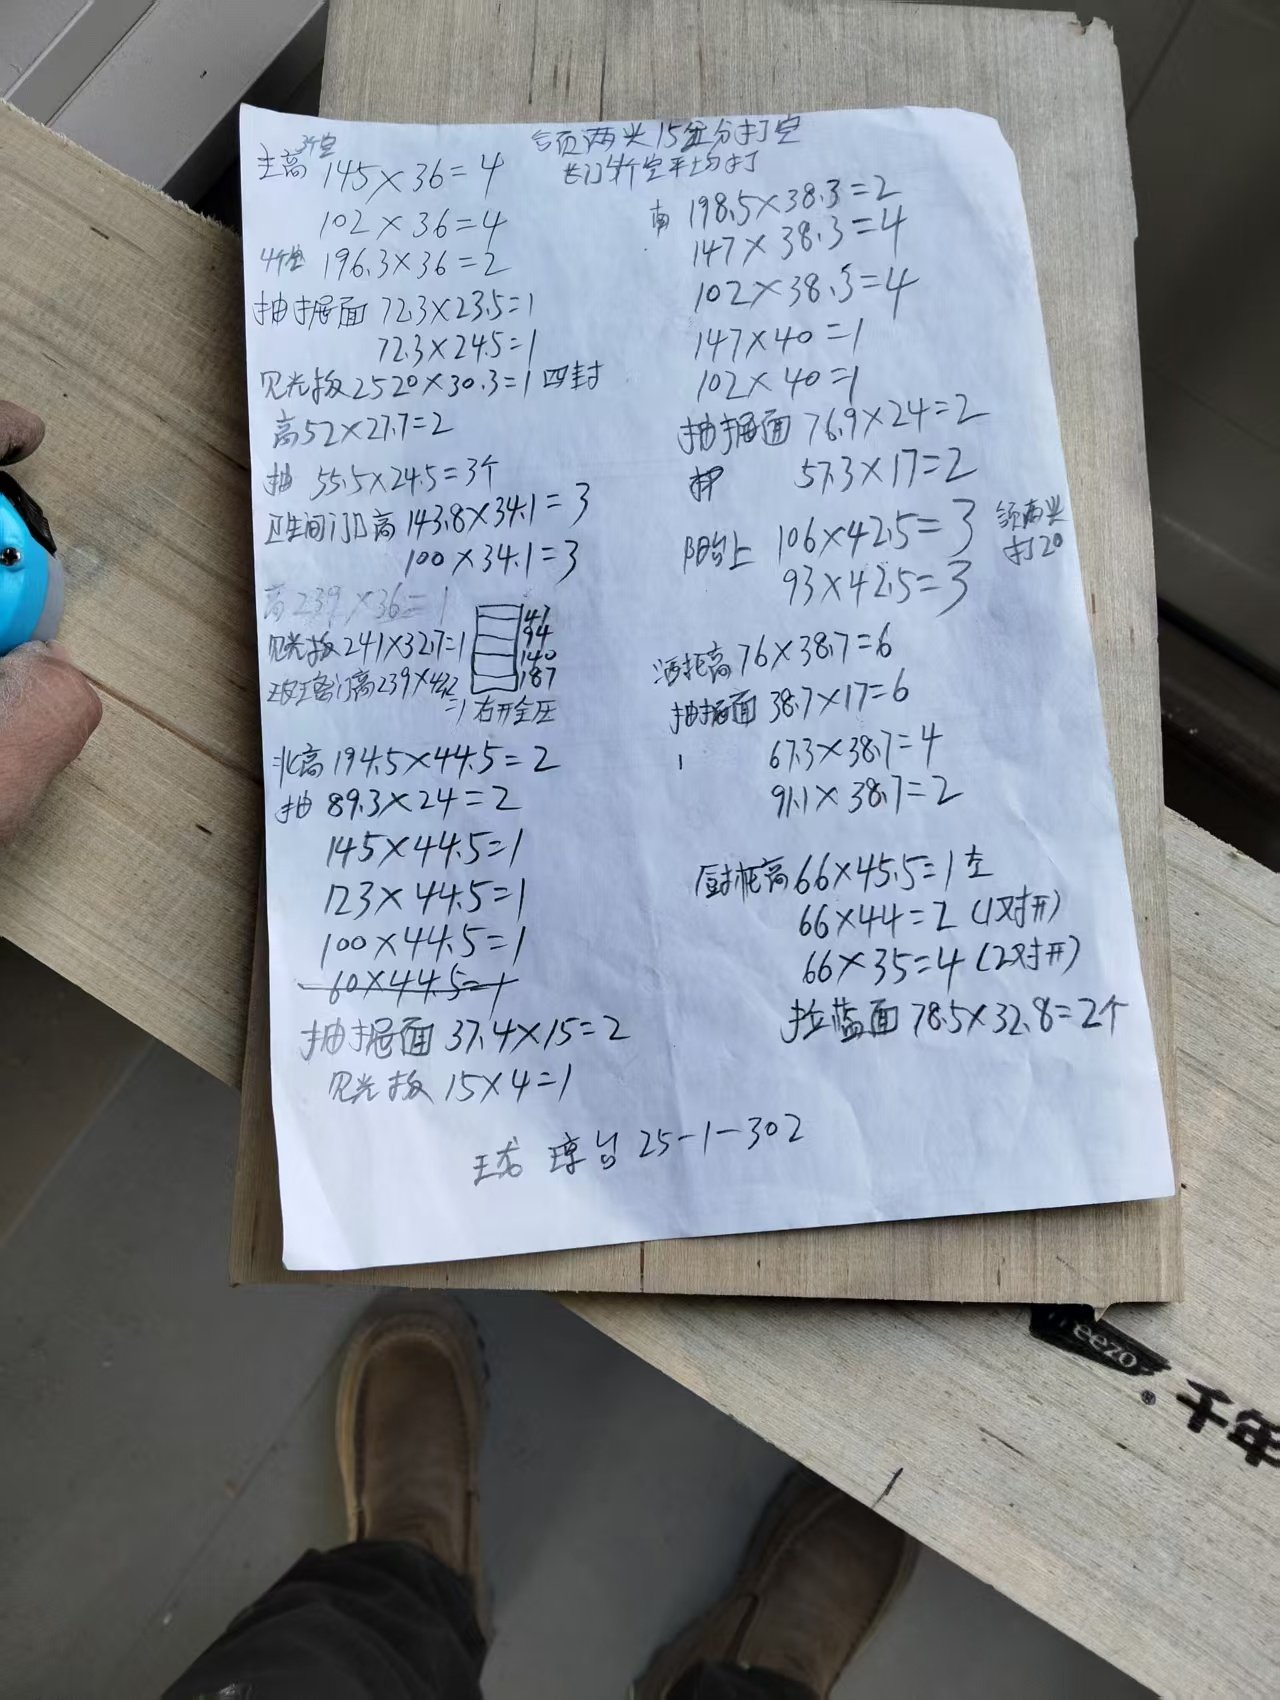 3个空
主高 145×36=4
102×36=4
4个空 196.3×36=2
抽屉面 72.3×23.5=1
72.3×24.5=1
见光板 2520×30.3=1 四封
高52×27.7=2
抽 55.5×24.5=3个
卫生间门 高 143.8×34.1=3
100×34.1=3
高 239×36=1
见光板 241×32.7=1
47
94
140
187
玻璃门高 239×
=1 右开全压
北高 194.5×44.5=2
抽 89.3×24=2
145×44.5=1
123×44.5=1
100×44.5=1
60×44.5=1
抽屉面 37.4×15=2
见光板 15×4=1
两头15公分打空
长门4个空平均打
南 198.5×38.3=2
147×38.3=4
102×38.3=4
147×40=1
102×40=1
抽屉面 76.9×24=2
抽 57.3×17=2
阳台上 106×42.5=3
93×42.5=3
两头
打20
酒柜高 76×38.7=6
抽屉面 38.7×17=6
67.3×38.7=4
91.1×38.7=2
厨柜高 66×45.5=1左
66×44=2 (1对开)
66×35=4 (2对开)
拉蓝面 78.5×32.8=2个
王龙 琼台 25-1-302
eezo
®
千年